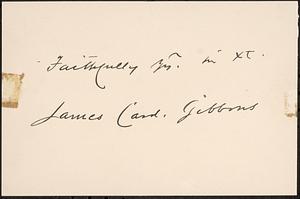 Faithfully Yrs. in Xt.
James Card. Gibbons